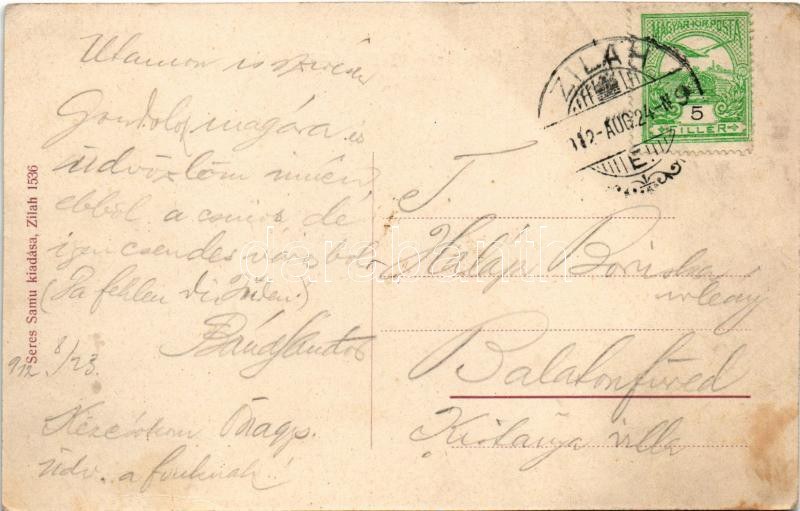 Utamon is szívesen
Gondolok magára és
üdvözlöm innen
ebből a csinos de
igen csendes városból
Bánd Sándor
912 8/23.
Kézcsókom Önagys.
üdv. a fiuknak!
Seres Samu kiadása, Zilah 1536
MAGYAR KIR. POSTA
5
FILLÉR
ZILAH
912-AUG.24-N9
E
darabanth
T.
Boriska
urleány
Balatonfüred
villa